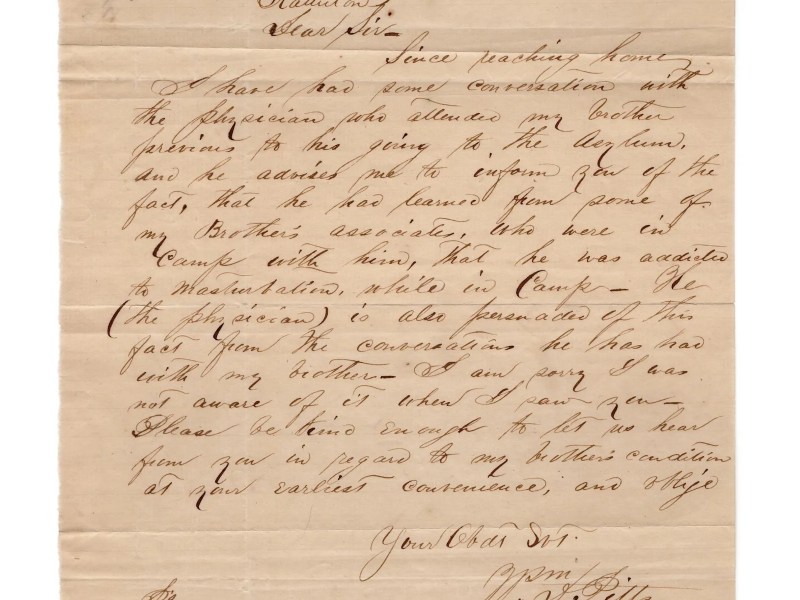 Dear Sir–
Since reaching home
I have had some conversation with
the physician who attended my brother
previous to his going to the Asylum,
and he advises me to inform you of the
fact, that he had learned from some of
my Brother's associates, who were in
Camp with him, that he was addicted
to masturbation, while in Camp – He
(the physician) is also persuaded of this
fact from the conversations he has had
with my brother – I am sorry I was
not aware of it when I saw you –
Please be kind enough to let us hear
from you in regard to my brother's condition
at your earliest convenience, and oblige
Your Obdt Svt.